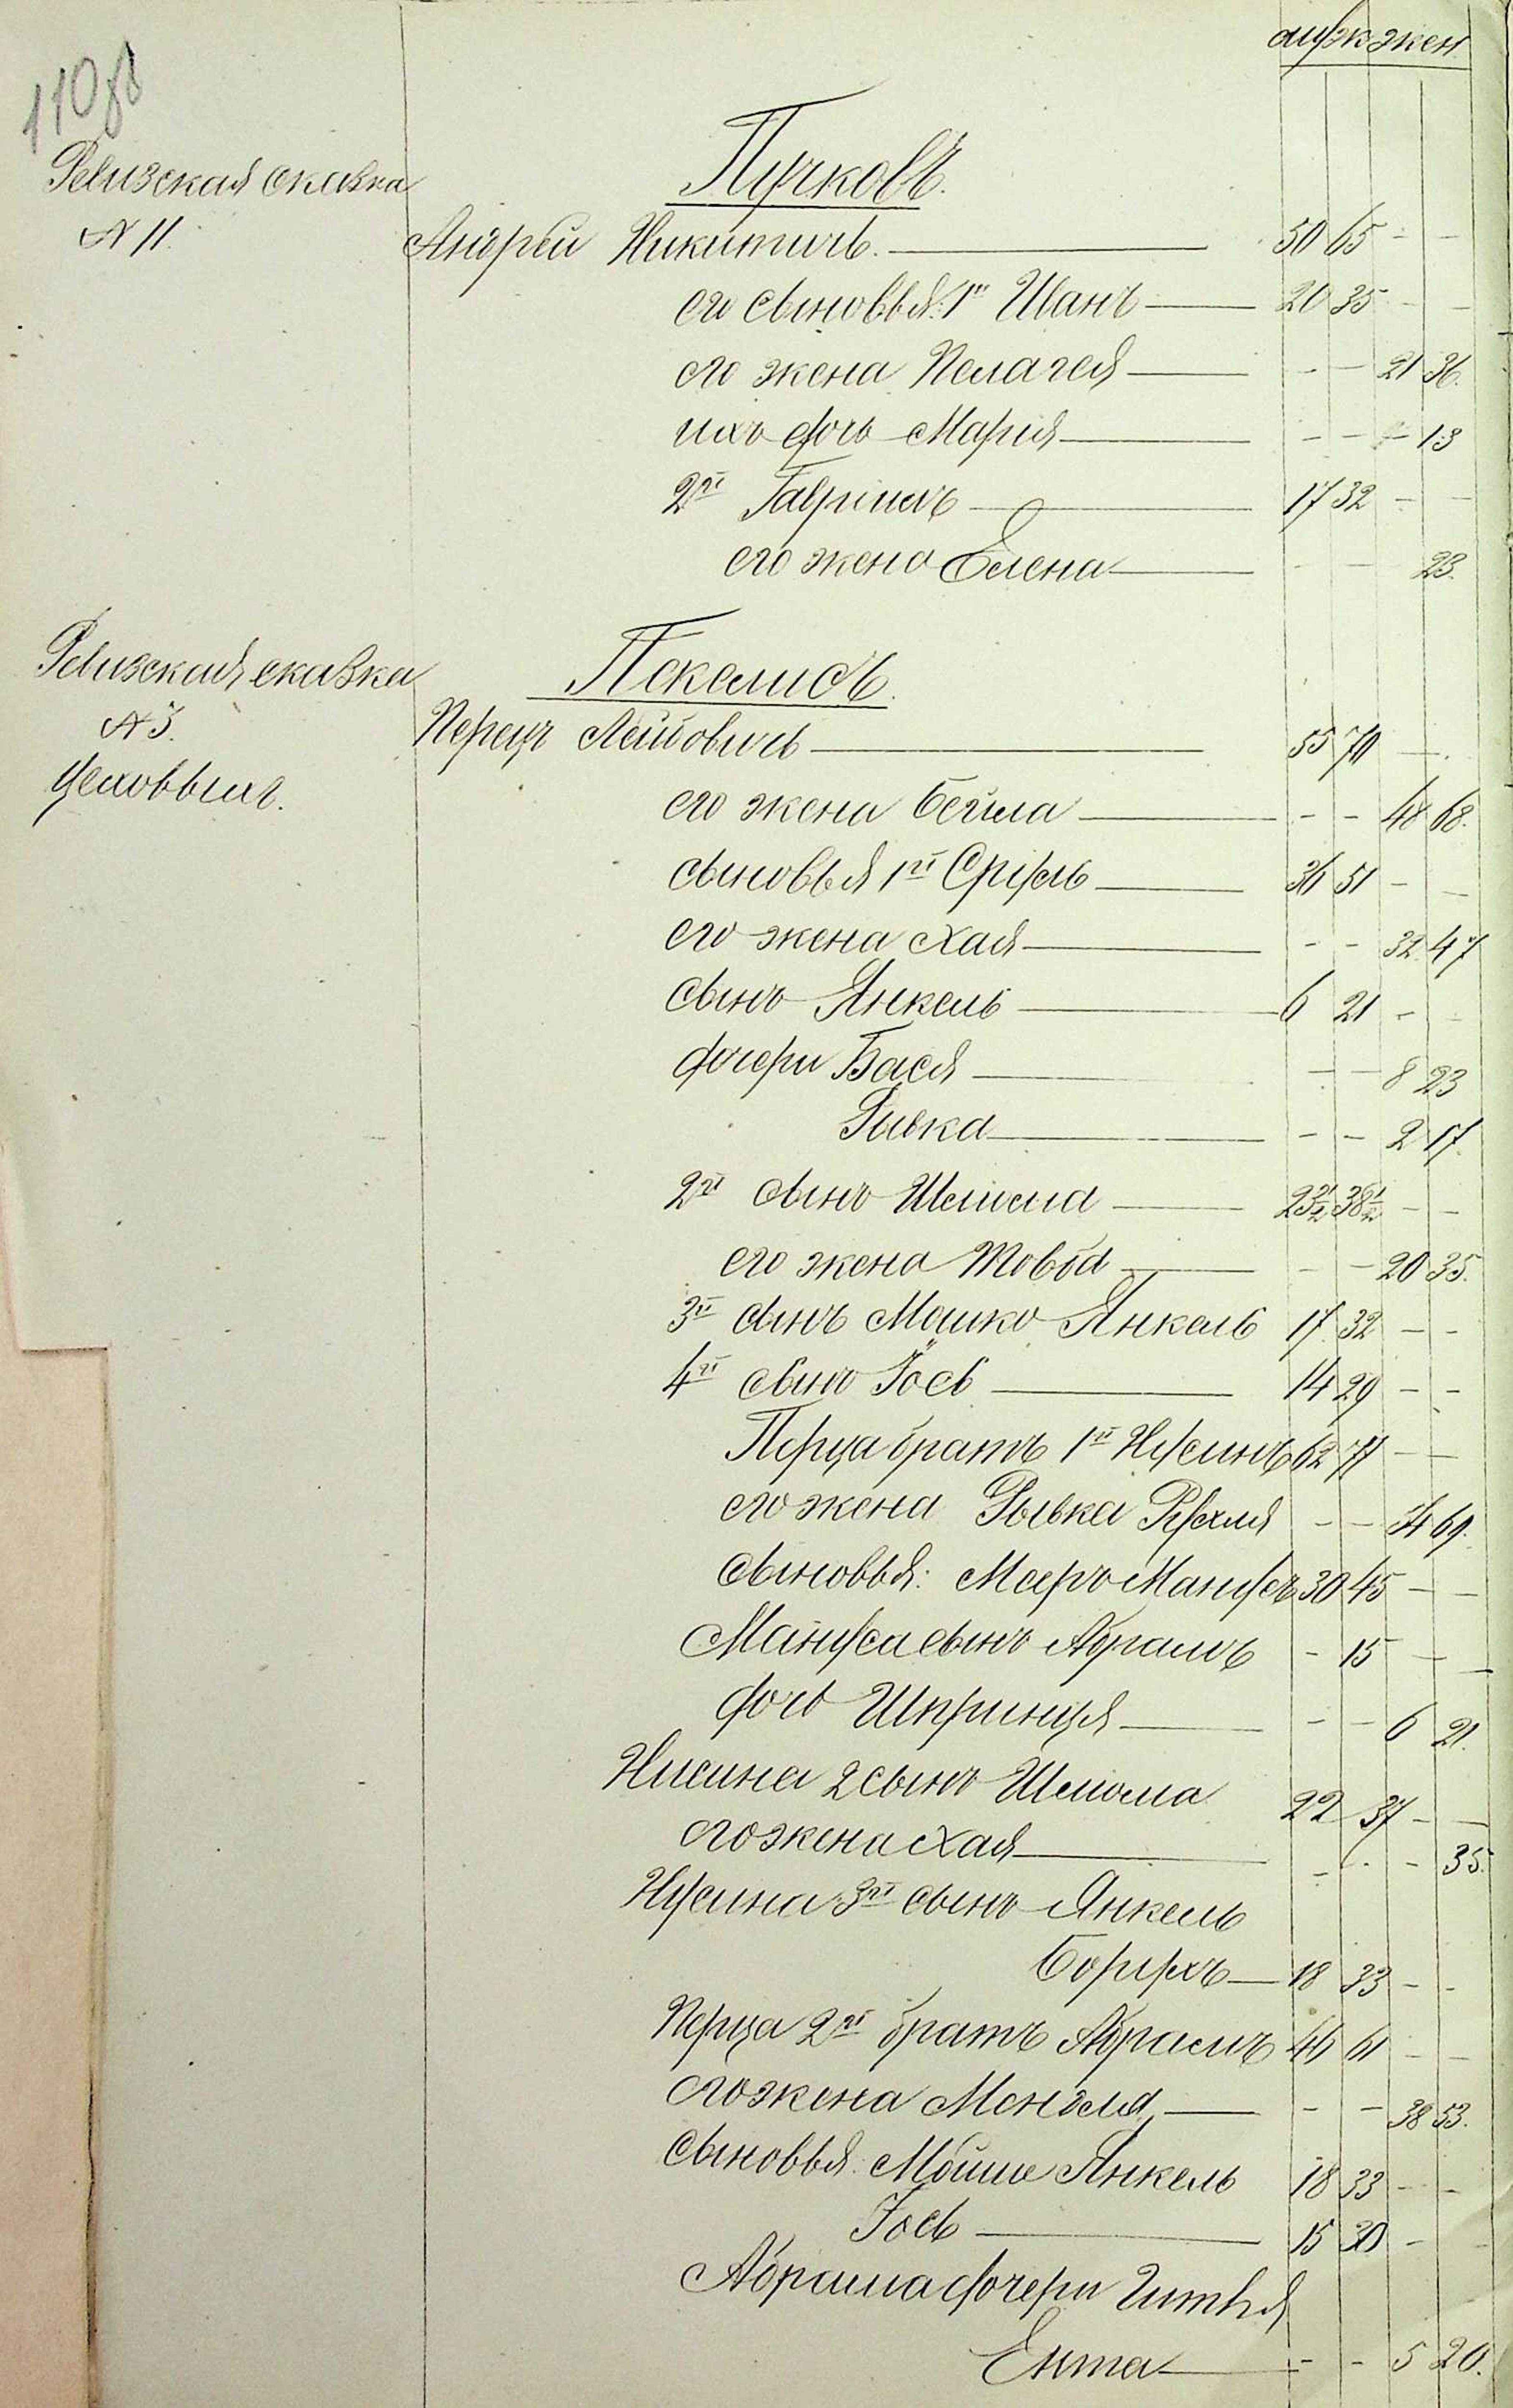 муж жен
110 об
Пучковъ.
Ревизская сказка
N 11.
Андрей Никитичъ. 50 65 - -
его сыновья: 1й Иванъ 20 35 - -
его жена Пелагея - - 21 36.
ихъ дочь Марія - - - 13
2й Гавріилъ 17 32 - -
его жена Елена - - 23.
Ревизская сказка
N 3.
цеховыхъ.
Пекелисъ.
Перецъ Лейбовичъ 55 70 -
его жена Бейла - - 48 68.
сыновья 1й Сруль 36 51 - -
его жена Хая - - 32 47
сынъ Янкель 6 21 - -
дочери Бася - - 8 23
Ривка - - 2 17.
2й сынъ Шлиома 23½ 38½ - -
его жена Товба - - 20 35.
3й сынъ Мошко Янкель 17 32 - -
4й сынъ Іось 14 29 - -
Перца братъ 1й Нусинъ 62 77 - -
его жена Рывка Рухля - - 54 69.
сыновья: Мееръ Манусъ 30 45 - -
Мануса сынъ Абрамъ - 15 - -
дочь Шпринця - - 6 21.
Нисина 2 сынъ Шлиома 22 37 - -
его жена Хая - - - 35.
Нусина 3й сынъ Янкель
Борухъ 18 33 - -
Перца 2й братъ Абрамъ 46 61 - -
его жена Мендля - - 38 53.
сыновья: Мойше Янкель 18 33 - -
Іось 15 30 -
Абрама дочери Гитля
Ента - - 5 20.